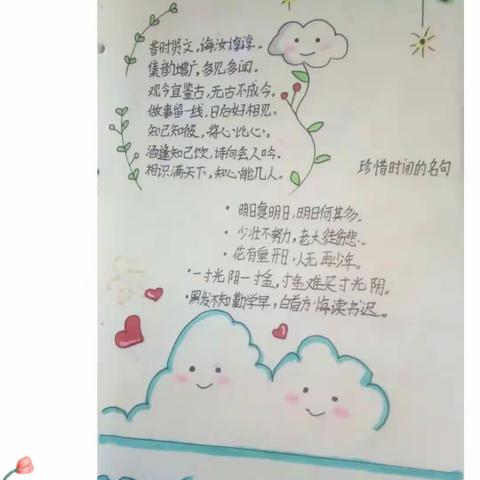 昔时贤文，诲汝谆谆。
集韵增广，多见多闻。
观今宜鉴古，无古不成今。
做事留一线，日后好相见。
知己知彼，将心比心。
酒逢知己饮，诗向会人吟。
相识满天下，知心能几人。
珍惜时间的名句
· 明日复明日，明日何其多。
· 少壮不努力，老大徒伤悲。
· 花有重开日，人无再少年。
· 一寸光阴一寸金，寸金难买寸光阴。
· 黑发不知勤学早，白首方悔读书迟。